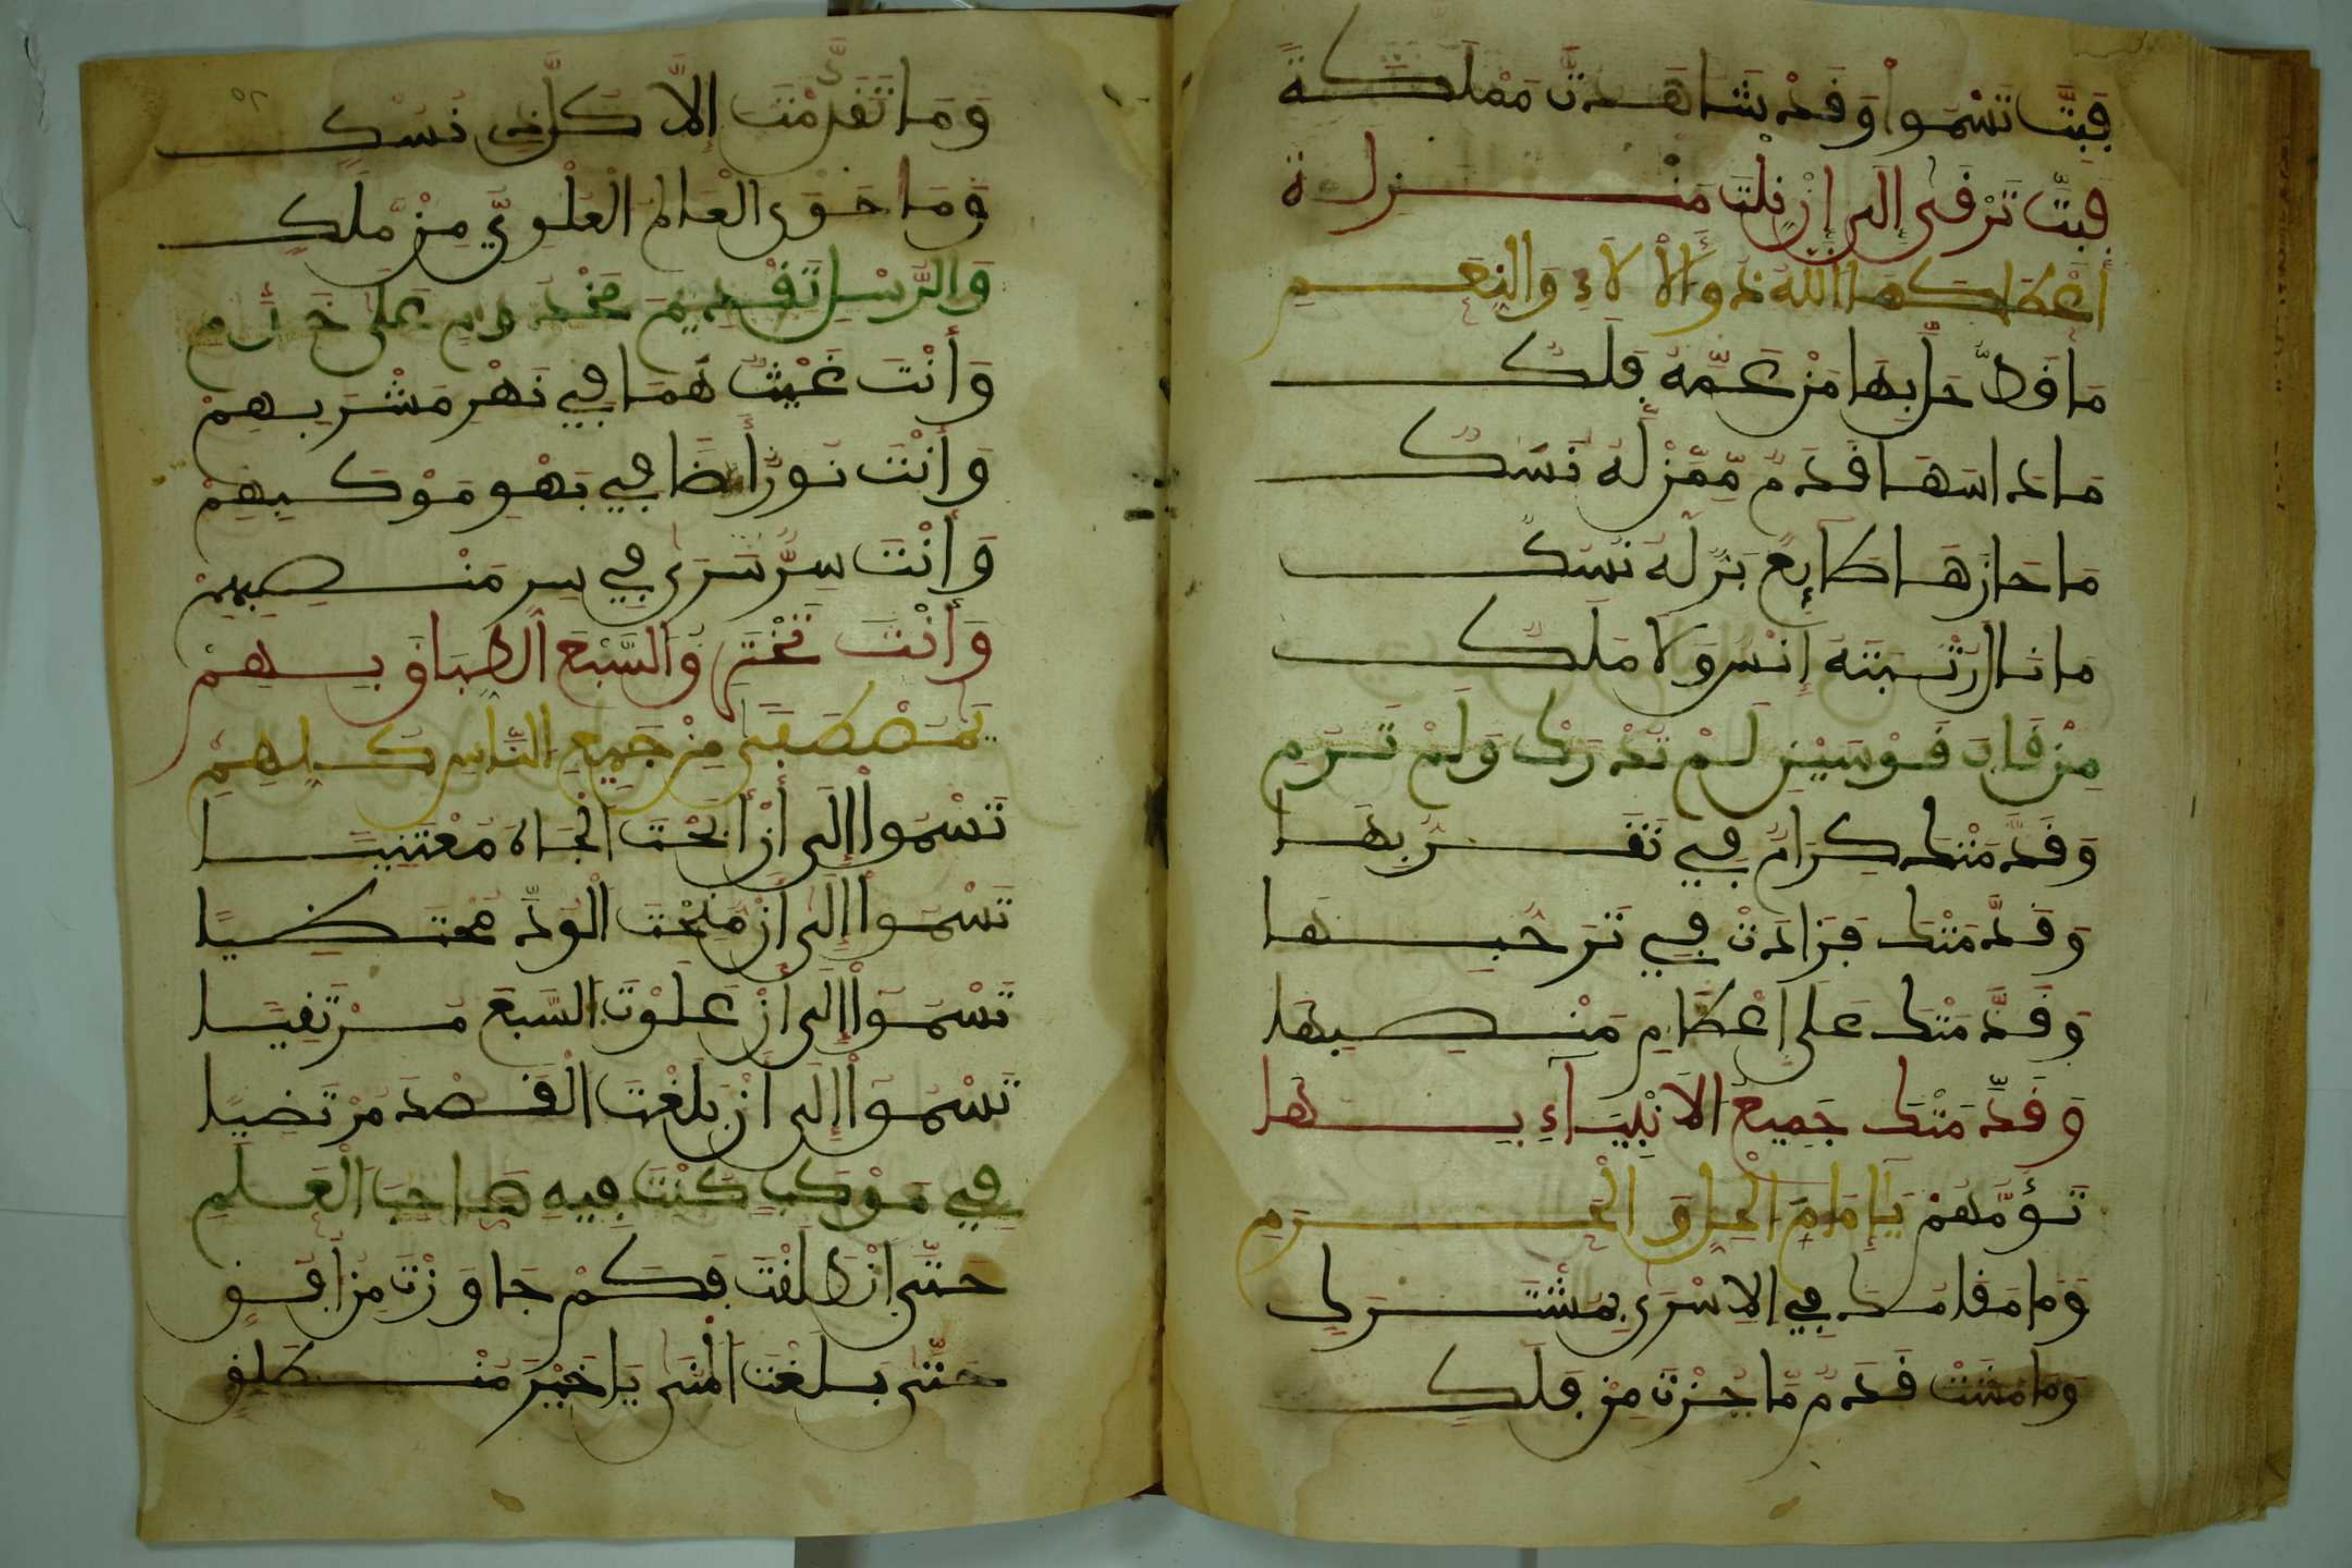 فَبِتَّ تَسْمُوا وَقَدْ شَاهَدتَّ مَمْلَكَةً
فَبِتَّ تَرْقَى إِلَى إِن نِلْتَ مَنْزِلَةً
أَعْطَاكَهَا اللَّهُ ذُو الْآلَاءِ وَالنِّعَمِ
مَا قَط حَلَّ بِهَا مَنْ عَمَّهُ فَلَكٌ
مَا دَاسَهَا قَدَمٌ مِمَّنْ لَهُ نُسُكٌ
مَا حَازَهَا طَائِعٌ بَرٌّ لَهُ نُسُكٌ
مَا نَالَ رُتْبَتَهُ إِنْسٌ وَلَا مَلَكٌ
مِنْ قَابَ قَوْسَيْنِ لَمْ تُدْرَكْ وَلَمْ تُرَمِ
وَقَدَّمَتْكَ كِرَامٌ فِي تَقَرُّبِهَا
وَقَدَّمَتْكَ فَزَادَتْ فِي تَرَحُّبِهَا
وَقَدَّمَتْكَ عَلَى إِعْظَامِ مَنْصِبِهَا
وَقَدَّمَتْكَ جَمِيعُ الْأَنْبِيَاءِ بِهَا
تَؤُمُّهُمْ يَا إِمَامَ الْحِلِّ وَالْحَرَمِ
وَمَا مَقَامُكَ فِي الْإِسْرَى بِمُشْتَرَكِ
وَمَا مَشَتْ قَدَمٌ مَا جُزْتَ مِنْ فَلَكِ
وَمَا تَقَدَّمْتَ إِلَّا كُلَّ ذِي نُسُكٍ
وَمَا حَوَى الْعَالَمُ الْعُلْوِيُّ مِنْ مَلَكٍ
وَالرُّسْلِ تَقْدِيمَ مَخْدُومٍ عَلَى خَدَمِ
وَأَنْتَ غَيْثٌ هَمَا فِي نَهْرِ مَشْرَبِهِمْ
وَأَنْتَ نُورٌ أَضَا فِي بَهْوِ مَوْكِبِهِمْ
وَأَنْتَ سِرٌّ سَرَى فِي سِرِّ مَنْصِبِهِمْ
وَأَنْتَ تَخْتَرِقُ السَّبْعَ الطِّبَاقَ بِهِمْ
يَا مُصْطَفَى مِنْ جَمِيعِ النَّاسِ كُلِّهِمِ
تَسْمُوا إِلَى أَنْ أُبِحْتَ الْجَاهَ مُعْتَنِيًا
تَسْمُوا إِلَى أَنْ مُنِحْتَ الْوُدَّ مُحْتَظِيًا
تَسْمُوا إِلَى أَنْ عَلَوْتَ السَّبْعَ مُرْتَقِيًا
تَسْمُوا إِلَى أَنْ بَلَغْتَ الْقَصْدَ مُرْتَضِيًا
فِي مَوْكِبٍ كُنْتَ فِيهِ صَاحِبَ الْعَلَمِ
حَتَّى انْطَلَقْتَ فَكَمْ جَاوَزْتَ مِنْ أُفُقٍ
حَتَّى بَلَغْتَ الْمُنَى يَا خَيْرَ مُنْطَلِقٍ